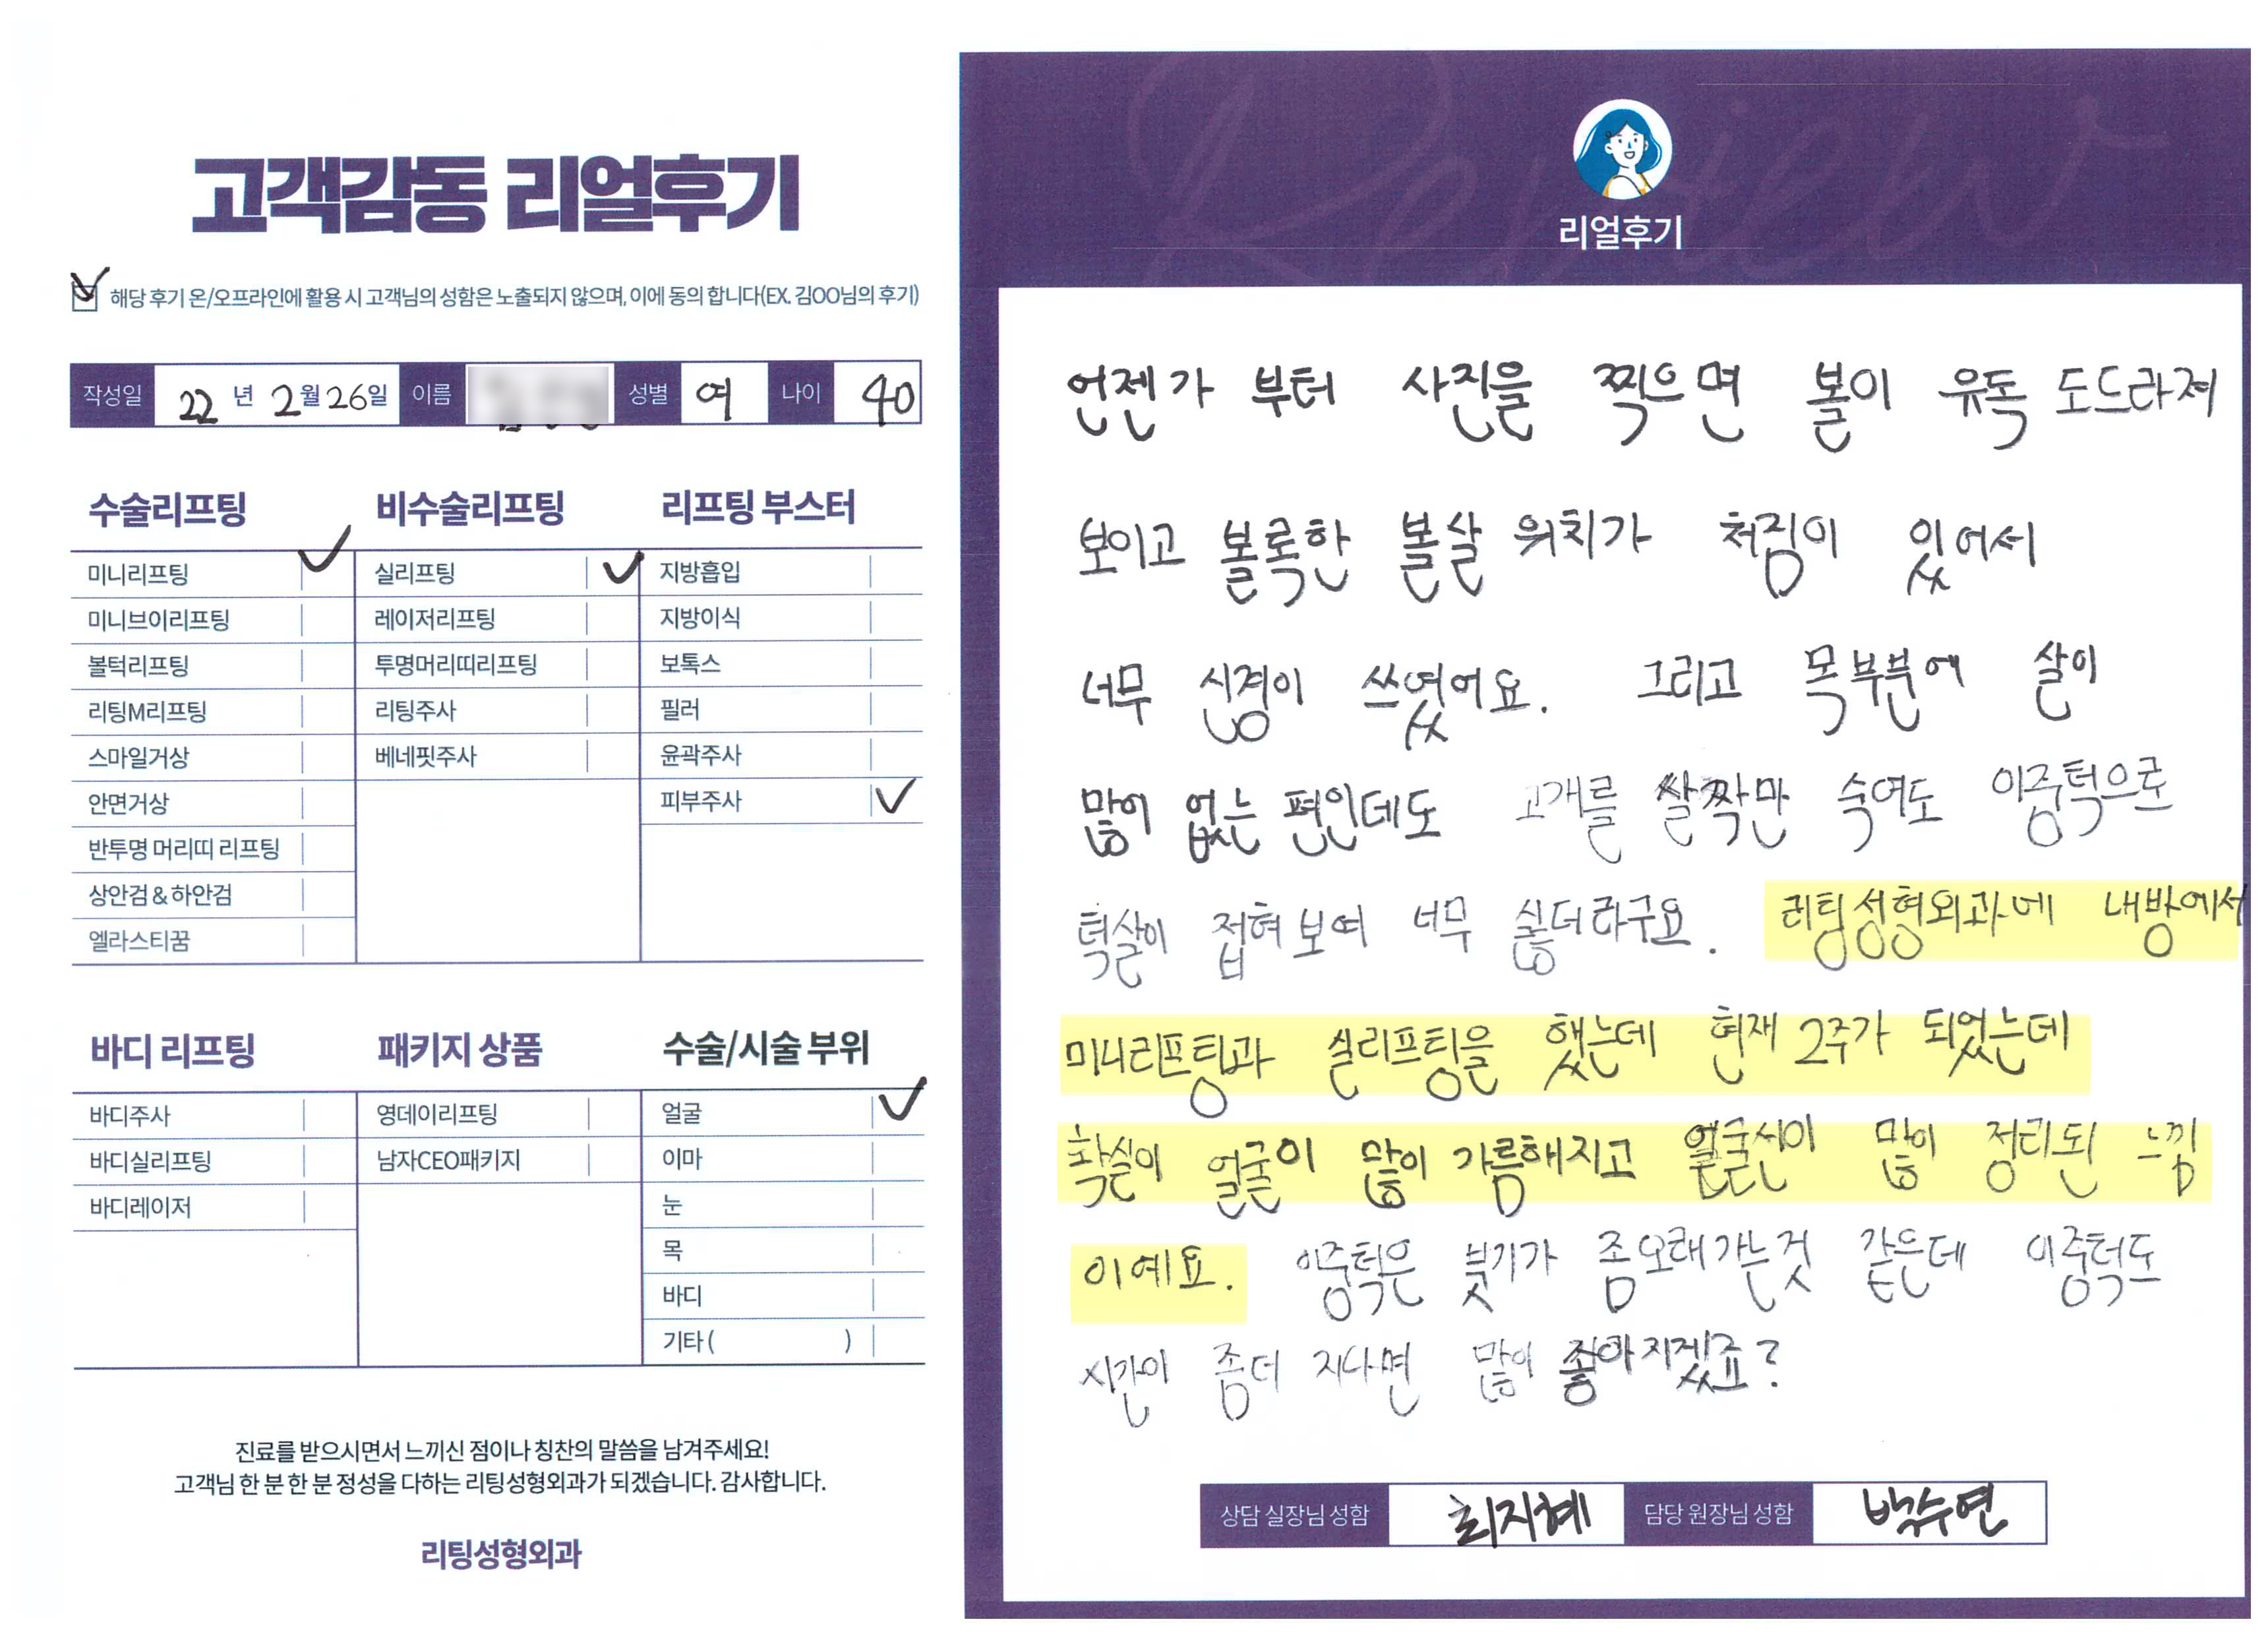 고객감동 리얼후기
해당 후기 온/오프라인에 활용 시 고객님의 성함은 노출되지 않으며, 이에 동의 합니다(EX. 김OO님의 후기)
작성일 22 년 2월 26일 이름 성별 여 나이 40
수술리프팅
미니리프팅
미니브이리프팅
볼턱리프팅
리팅M리프팅
스마일거상
안면거상
반투명 머리띠 리프팅
상안검 & 하안검
엘라스티꿈
비수술리프팅
실리프팅
레이저리프팅
투명머리띠리프팅
리팅주사
베네핏주사
리프팅 부스터
지방흡입
지방이식
보톡스
필러
윤곽주사
피부주사
바디 리프팅
바디주사
바디실리프팅
바디레이저
패키지 상품
영데이리프팅
남자CEO패키지
수술/시술 부위
얼굴
이마
눈
목
바디
기타 ( )
진료를 받으시면서 느끼신 점이나 칭찬의 말씀을 남겨주세요!
고객님 한 분 한 분 정성을 다하는 리팅성형외과가 되겠습니다. 감사합니다.
리팅성형외과
Review
리얼후기
언젠가 부터 사진을 찍으면 볼이 유독 도드라져
보이고 볼록한 볼살 위치가 처짐이 있어서
너무 신경이 쓰였어요. 그리고 목부분에 살이
많이 없는 편인데도 고개를 살짝만 숙여도 이중턱으로
턱살이 접혀보여 너무 싫더라구요. 리팅성형외과에 내방에서
미니리프팅과 실리프팅을 했는데 현재 2주가 되었는데
확실이 얼굴이 많이 갸름해지고 얼굴선이 많이 정리된 느낌
이예요. 이중턱은 붓기가 좀오래가는것 같은데 이중턱도
시간이 좀더 지나면 많이 좋아지겠죠?
상담 실장님 성함 최지혜 담당 원장님 성함 박수연